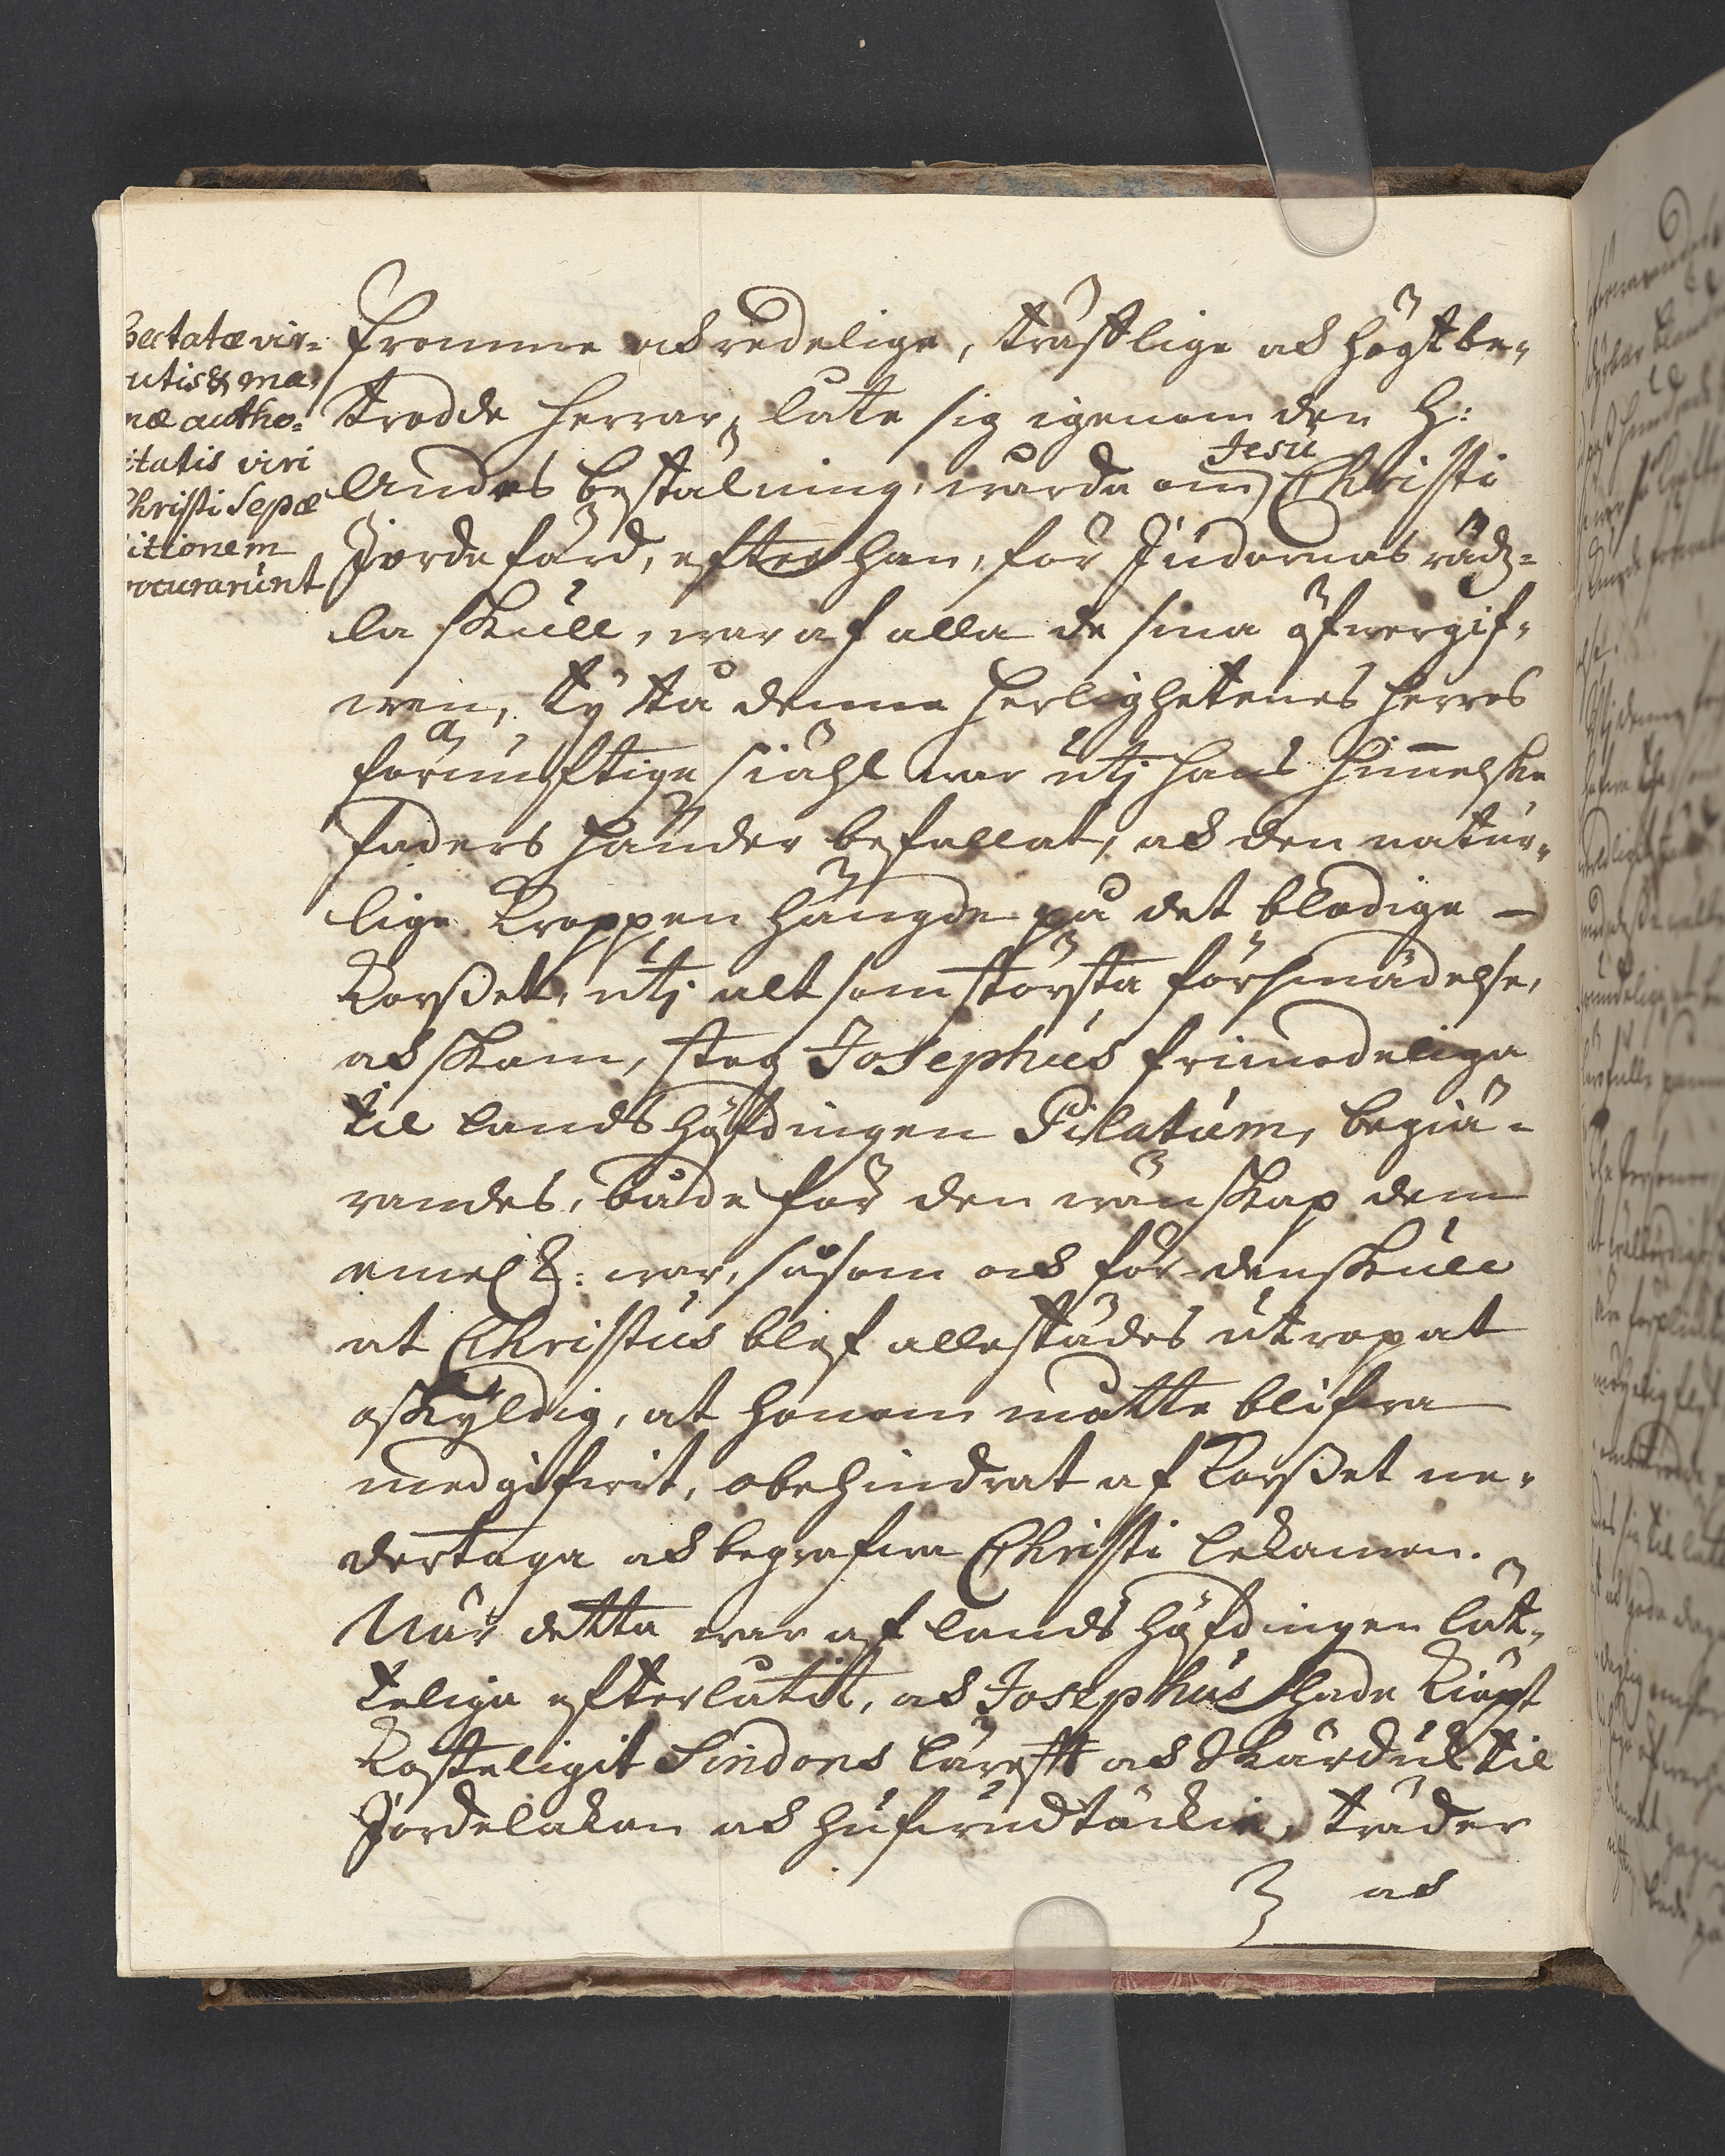 bectatæ vir-
utis & ma,
næ autho-
itatis viri
Christi Sepæ
itionem
rocurarunt
fromme och redelige, träflige och högtbe-
trodde herrar, late sig igenom den H:
Andes bestälning, warda om Jesu Christi
Jordefärd, efter han, för Judarnas rädz-
la skull, war af alla de sina öfwergif-
wen, ty tå denne Herlighetenes Herres
förnuftige siähl war utj hans himelske
faders händer befallat, och den natur-
lige Kroppen hängde på det blodige -
Korßet, utj alt som största försmädelse,
och skam, steg Josephus frimodeliga
til landshöfdingen Pilatum, begiä-
randes, både för den wänskap dem
emel: war, såsom och för den skull
at Christus blef allestädes utropat
oskyldig, at honom måtte blifwa
medgifwit, obehindrat af Korßet ne-
dertaga och begrafwa Christi lekamen.
När detta war af landshöfdingen lät-
teliga efterlåtit, och Josephus hade kiöpt
kosteligit Sindons lärefft och Skärduk til
Jordelakan och hufwudtäckie, träder
och